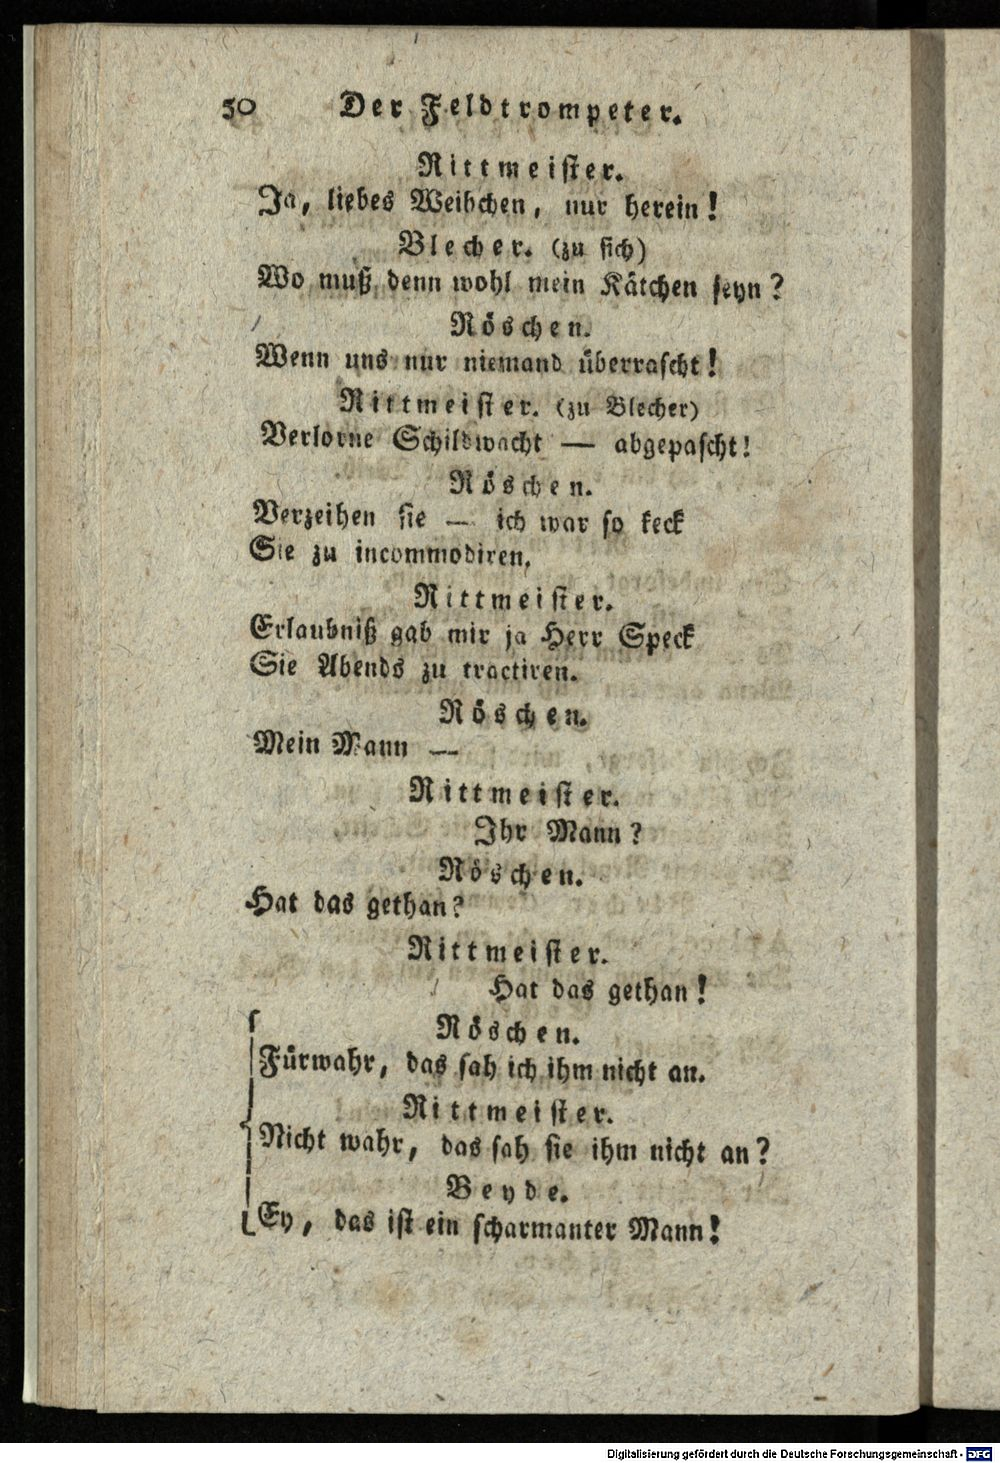 50 Der Feldtrompeter.
Rittmeister.
Ja, liebes Weibchen, nur herein!
Blecher. (zu sich)
Wo muß denn wohl mein Kätchen seyn?
Röschen.
Wenn uns nur niemand überrascht!
Rittmeister. (zu Blecher)
Verlorne Schildwacht — abgepascht!
Röschen.
Verzeihen sie — ich war so keck
Sie zu incommodiren.
Rittmeister.
Erlaubniß gab mir ja Herr Speck
Sie Abends zu tractiren.
Röschen.
Mein Mann —
Rittmeister.
Ihr Mann?
Röschen.
Hat das gethan?
Rittmeister.
Hat das gethan!
Röschen.
Fürwahr, das sah ich ihm nicht an.
Rittmeister.
Nicht wahr, das sah sie ihm nicht an?
Beyde.
Ey, das ist ein scharmanter Mann!
Digitalisierung gefördert durch die Deutsche Forschungsgemeinschaft - DFG